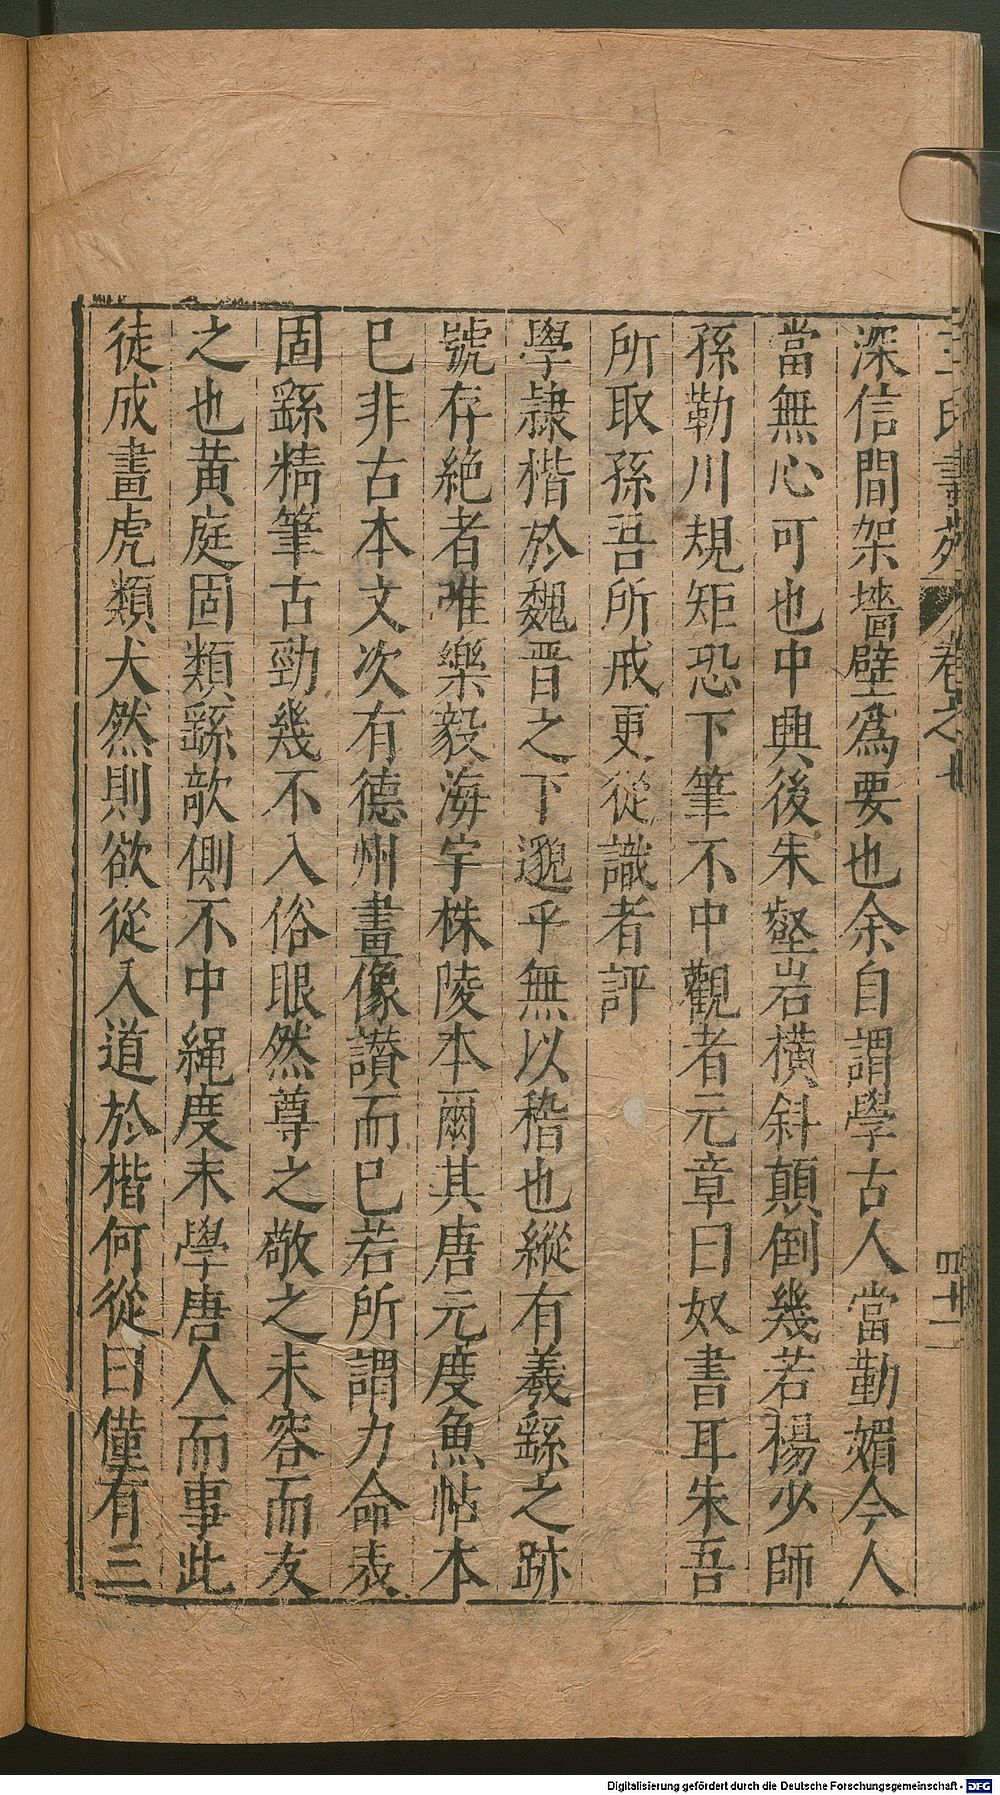 王氏書苑 卷之七 四十一
深信間架墻壁爲要也余自謂學古人當勤媚今人
當無心可也中興後朱壑岩橫斜顛倒幾若楊少師
孫勒川規矩恐下筆不中觀者元章曰奴書耳朱吾
所取孫吾所戒更從識者評
學隷楷於魏晋之下邈乎無以稽也縱有羲繇之跡
號存絶者唯樂毅海宇株陵本爾其唐元度魚帖本
巳非古本文次有德州畫像讃而已若所謂力命表
固繇精筆古勁幾不入俗眼然尊之敬之未容而友
之也黄庭固類繇欹側不中繩度未學唐人而事此
徒成畫虎類犬然則欲從入道於楷何從曰僅有三
Digitalisierung gefördert durch die Deutsche Forschungsgemeinschaft - DFG